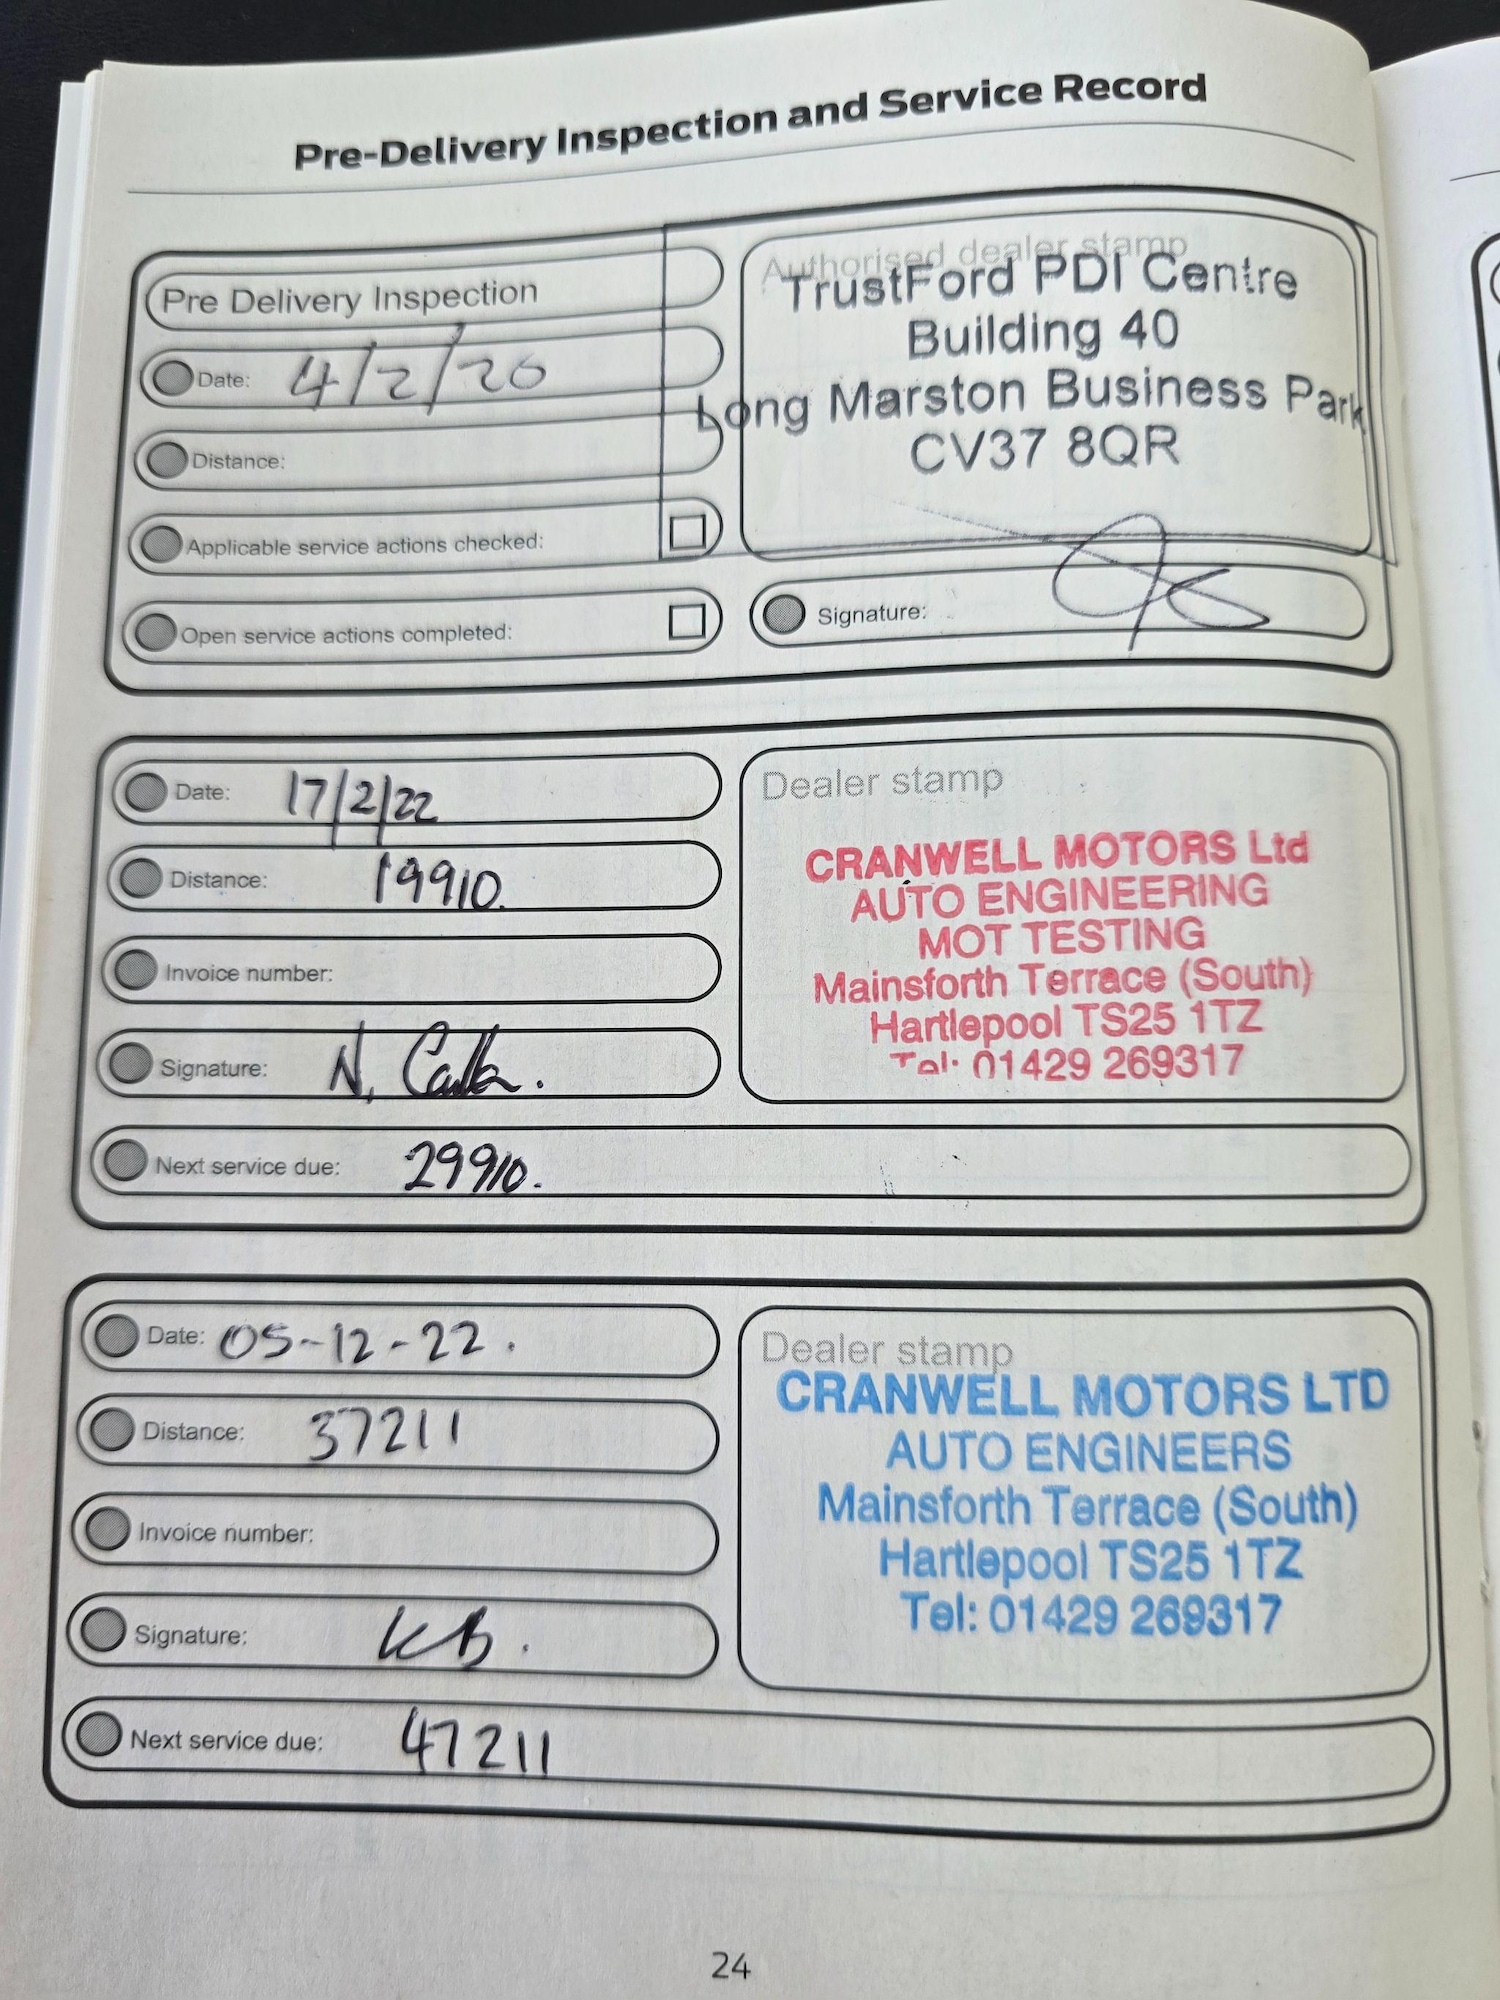 Pre-Delivery Inspection and Service Record
Pre Delivery Inspection
Date: 4/2/20
Distance:
Applicable service actions checked:
Open service actions completed:
Authorised dealer stamp
TrustFord PDI Centre
Building 40
Long Marston Business Park
CV37 8QR
Signature:
Date: 17/2/22
Distance: 19910.
Invoice number:
Signature: N.
Next service due: 29910.
Dealer stamp
CRANWELL MOTORS Ltd
AUTO ENGINEERING
MOT TESTING
Mainsforth Terrace (South)
Hartlepool TS25 1TZ
Tel: 01429 269317
Date: 05-12-22.
Distance: 37211
Invoice number:
Signature: KB.
Next service due: 47211
Dealer stamp
CRANWELL MOTORS LTD
AUTO ENGINEERS
Mainsforth Terrace (South)
Hartlepool TS25 1TZ
Tel: 01429 269317
24